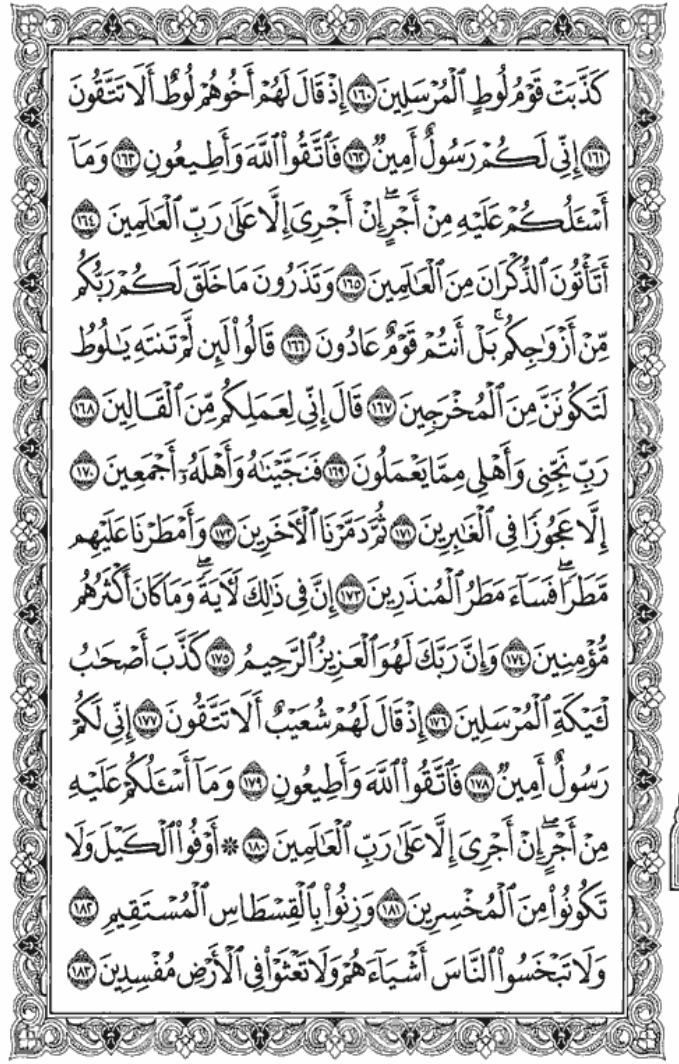 كَذَّبَتْ قَوْمُ لُوطٍ ٱلْمُرْسَلِينَ ١٦٠ إِذْ قَالَ لَهُمْ أَخُوهُمْ لُوطٌ أَلَا تَتَّقُونَ
١٦١ إِنِّي لَكُمْ رَسُولٌ أَمِينٌ ١٦٢ فَٱتَّقُوا۟ ٱللَّهَ وَأَطِيعُونِ ١٦٣ وَمَآ
أَسْـَٔلُكُمْ عَلَيْهِ مِنْ أَجْرٍ ۖ إِنْ أَجْرِىَ إِلَّا عَلَىٰ رَبِّ ٱلْعَـٰلَمِينَ ١٦٤
أَتَأْتُونَ ٱلذُّكْرَانَ مِنَ ٱلْعَـٰلَمِينَ ١٦٥ وَتَذَرُونَ مَا خَلَقَ لَكُمْ رَبُّكُم
مِّنْ أَزْوَٰجِكُم ۚ بَلْ أَنتُمْ قَوْمٌ عَادُونَ ١٦٦ قَالُوا۟ لَئِن لَّمْ تَنتَهِ يَـٰلُوطُ
لَتَكُونَنَّ مِنَ ٱلْمُخْرَجِينَ ١٦٧ قَالَ إِنِّي لِعَمَلِكُم مِّنَ ٱلْقَالِينَ ١٦٨
رَبِّ نَجِّنِى وَأَهْلِى مِمَّا يَعْمَلُونَ ١٦٩ فَنَجَّيْنَـٰهُ وَأَهْلَهُۥٓ أَجْمَعِينَ ١٧٠
إِلَّا عَجُوزًا فِى ٱلْغَـٰبِرِينَ ١٧١ ثُمَّ دَمَّرْنَا ٱلْـَٔاخَرِينَ ١٧٢ وَأَمْطَرْنَا عَلَيْهِم
مَّطَرًا ۖ فَسَآءَ مَطَرُ ٱلْمُنذَرِينَ ١٧٣ إِنَّ فِى ذَٰلِكَ لَـَٔايَةً ۖ وَمَا كَانَ أَكْثَرُهُم
مُّؤْمِنِينَ ١٧٤ وَإِنَّ رَبَّكَ لَهُوَ ٱلْعَزِيزُ ٱلرَّحِيمُ ١٧٥ كَذَّبَ أَصْحَـٰبُ
لْـَٔيْكَةِ ٱلْمُرْسَلِينَ ١٧٦ إِذْ قَالَ لَهُمْ شُعَيْبٌ أَلَا تَتَّقُونَ ١٧٧ إِنِّي لَكُمْ
رَسُولٌ أَمِينٌ ١٧٨ فَٱتَّقُوا۟ ٱللَّهَ وَأَطِيعُونِ ١٧٩ وَمَآ أَسْـَٔلُكُمْ عَلَيْهِ
مِنْ أَجْرٍ ۖ إِنْ أَجْرِىَ إِلَّا عَلَىٰ رَبِّ ٱلْعَـٰلَمِينَ ١٨٠ ۞ أَوْفُوا۟ ٱلْكَيْلَ وَلَا
تَكُونُوا۟ مِنَ ٱلْمُخْسِرِينَ ١٨١ وَزِنُوا۟ بِٱلْقِسْطَاسِ ٱلْمُسْتَقِيمِ ١٨٢
وَلَا تَبْخَسُوا۟ ٱلنَّاسَ أَشْيَآءَهُمْ وَلَا تَعْثَوْا۟ فِى ٱلْأَرْضِ مُفْسِدِينَ ١٨٣